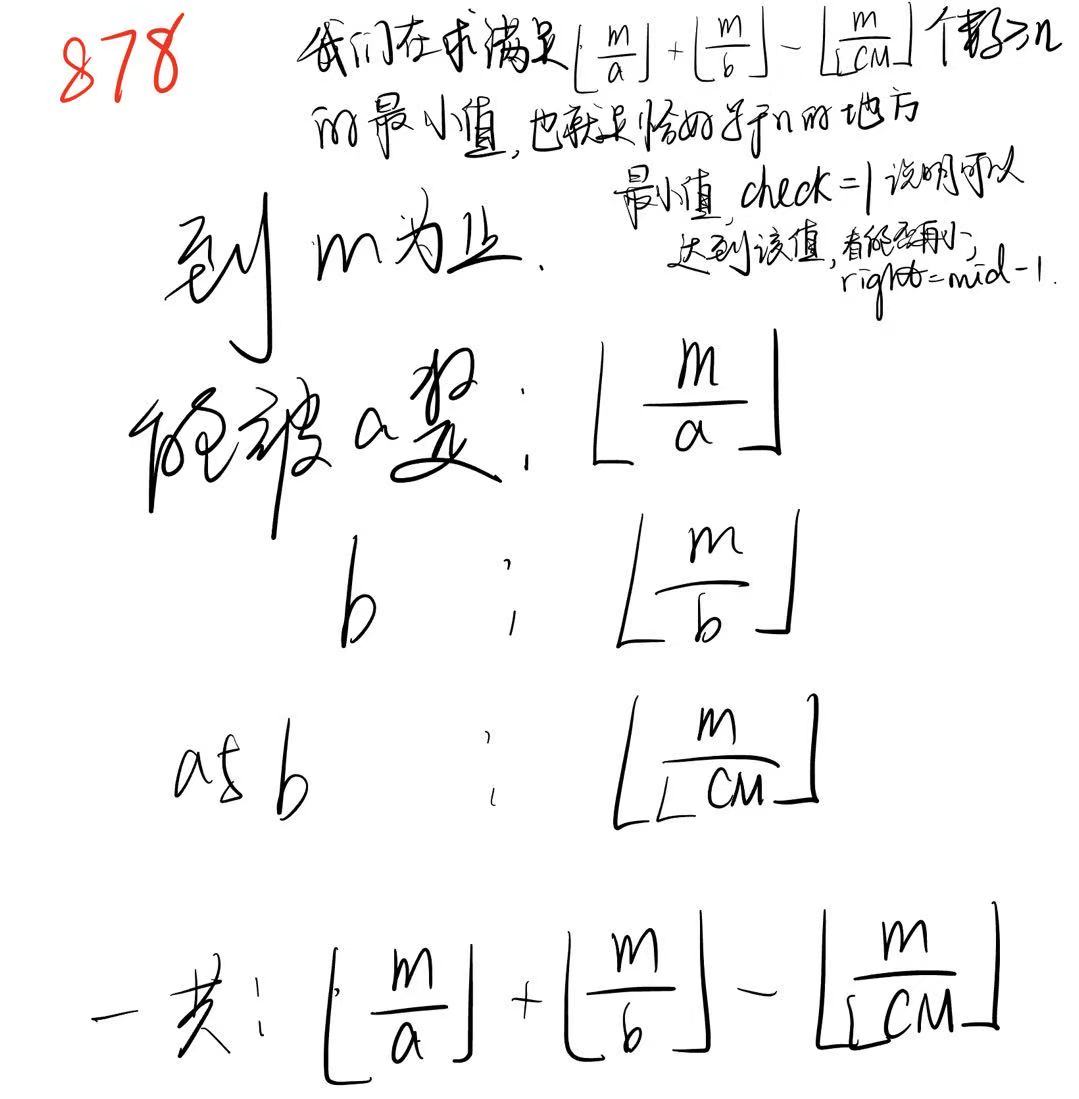 878
我们在求满足⌊m/a⌋+⌊m/b⌋-⌊m/LCM⌋个数≥n
的最小值,也就是恰好等于n的地方
最小值,check=1说明可以
达到该值,看能否再小,
right=mid-1.
到m为止.
能被a整:⌊m/a⌋
b:⌊m/b⌋
a与b:⌊m/LCM⌋
一共:⌊m/a⌋+⌊m/b⌋-⌊m/LCM⌋